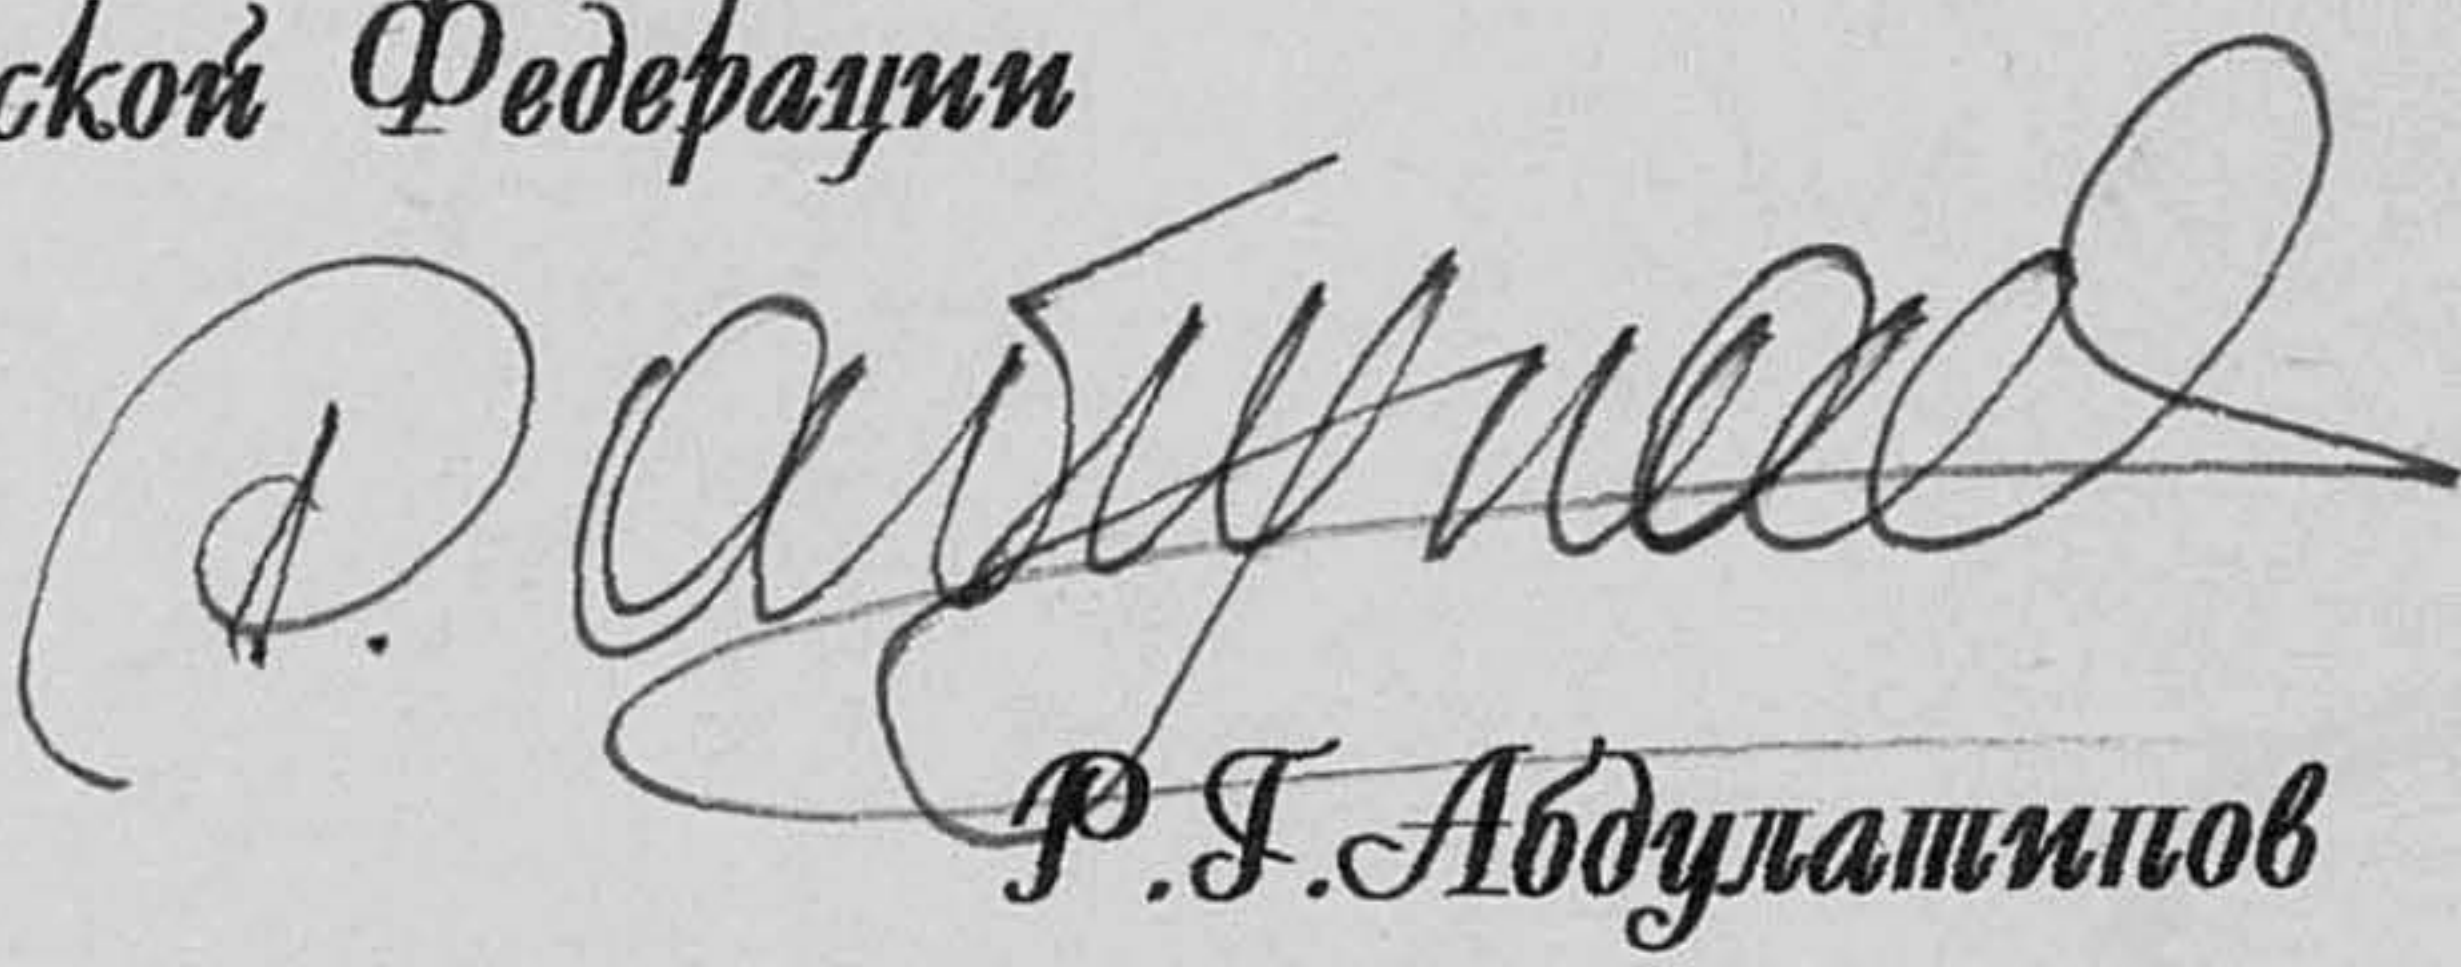 ской Федерации
Р.Г.Абдулатипов